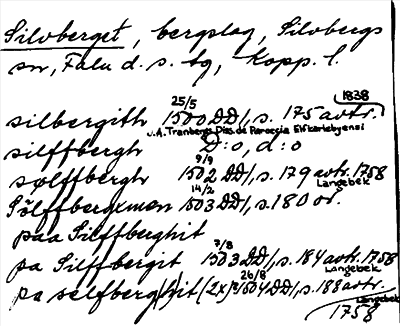 Silvberget, bergslag, Silvbergs
sn, Falu d. s. tg, Kopp. l.
1838
silbergith 25/5 1500 DD/, s. 175 avtr.
u.A. Tranbergs Diss. de Paroecia Elfkarlebyensi
silffbergh D:o, d:o
sølffbergh 9/9 1502 DD/, s. 179 avtr. 1758
Langebek
Sölffbergxmen 14/2 1503 DD/, s. 180 or.
paa Silffberghit
pa Silffbergit 7/8 1503 DD/, s. 184 avtr. 1758
Langebek
pa selfberg/h/it (2x) 26/8 1504 DD/, s. 188 avtr.
Langebek
1758